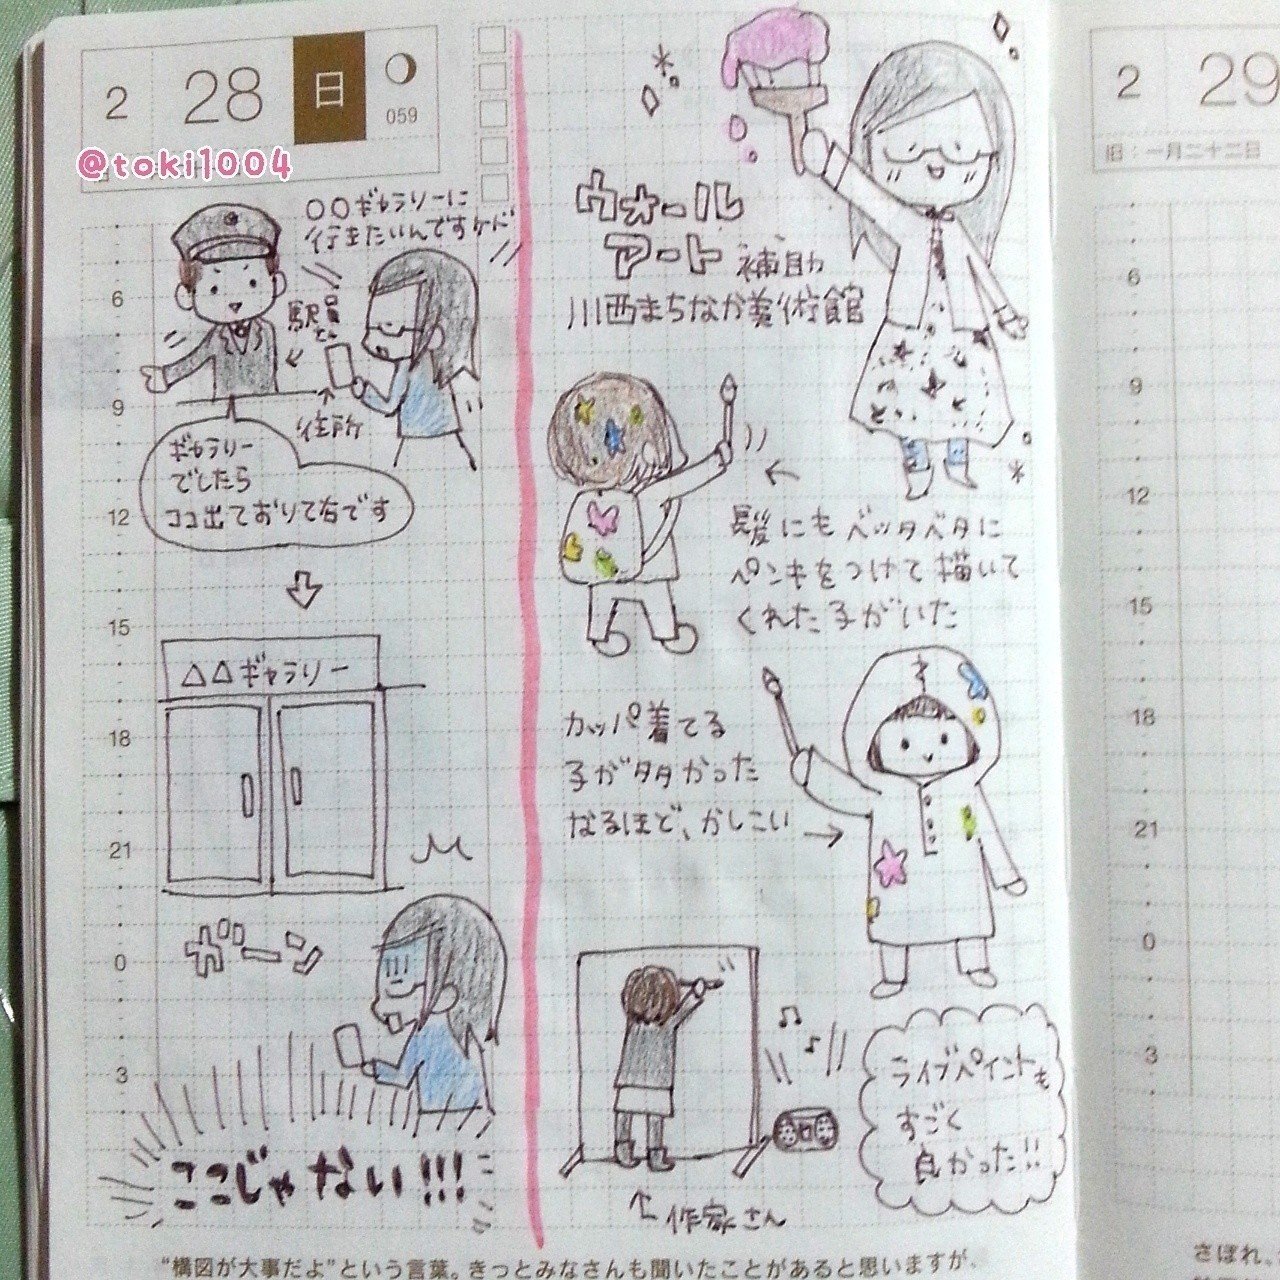 2 28 日
059
@toki1004
○○ギャラリーに
行きたいんですケド
駅員さん
住所
ギャラリー
でしたら
ココ出ており て右です
△△ギャラリー
ガーン
ここじゃない!!!
ウォール
アート 補助
川西まちなか美術館
長髪にもベッタベタに
ペンキをつけて描いて
くれた子がいた
カッパ着てる
子が多かった
なるほど、かしこい
ライブペイントも
すごく
良かった!!
作家さん
6
9
12
15
18
21
0
3
"構図が大事だよ"という言葉。きっとみなさんも聞いたことがあると思いますが、
2 29
旧:一月二十二日
6
9
12
15
18
21
0
3
さぼれ、